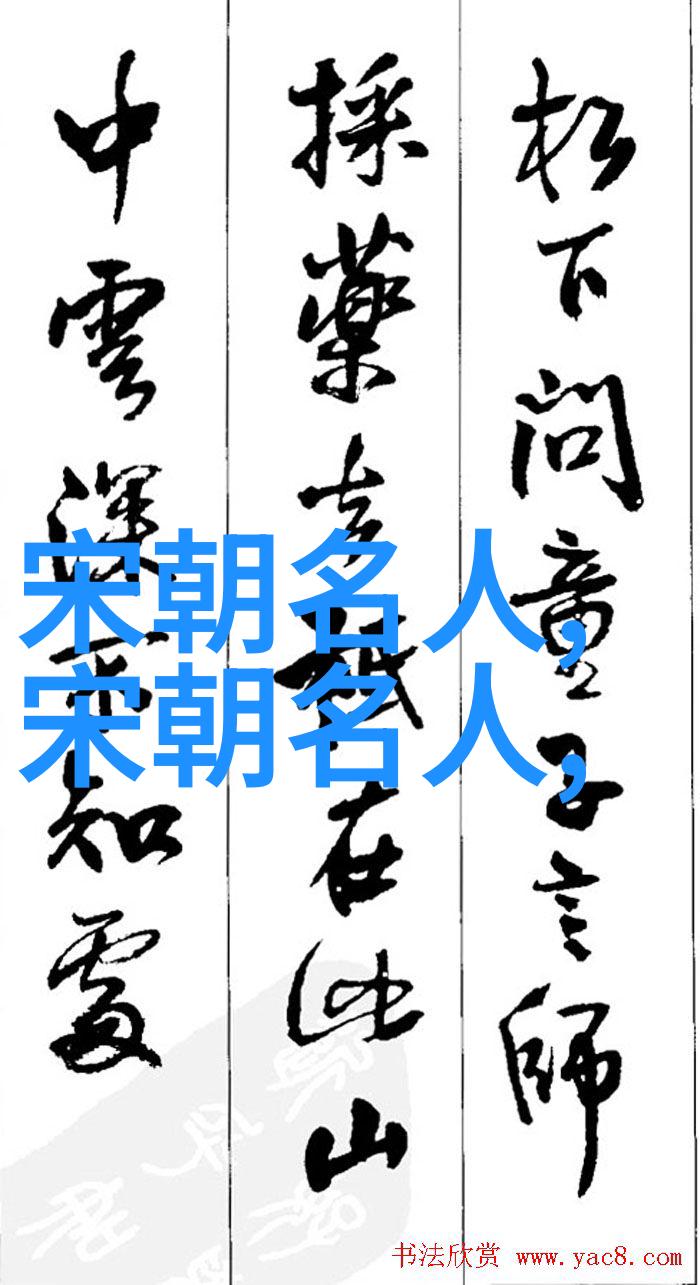 松下问童子言師
採藥去祇在此山
中雲深不知處
宋朝名人,
宋朝名人,
书法欣赏 www.yac8.com